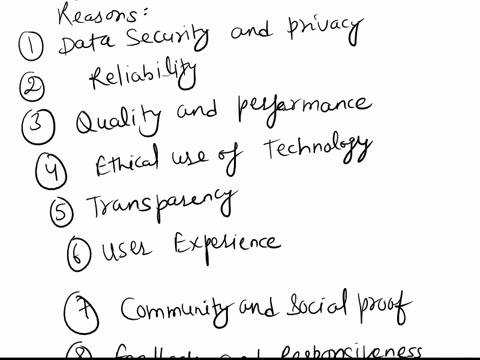 Reasons:
① Data Security and privacy
② Reliability
③ Quality and performance
④ Ethical use of Technology
⑤ Transparency
⑥ User Experience
⑦ Community and Social proof
⑧ Feedback and Responsiveness